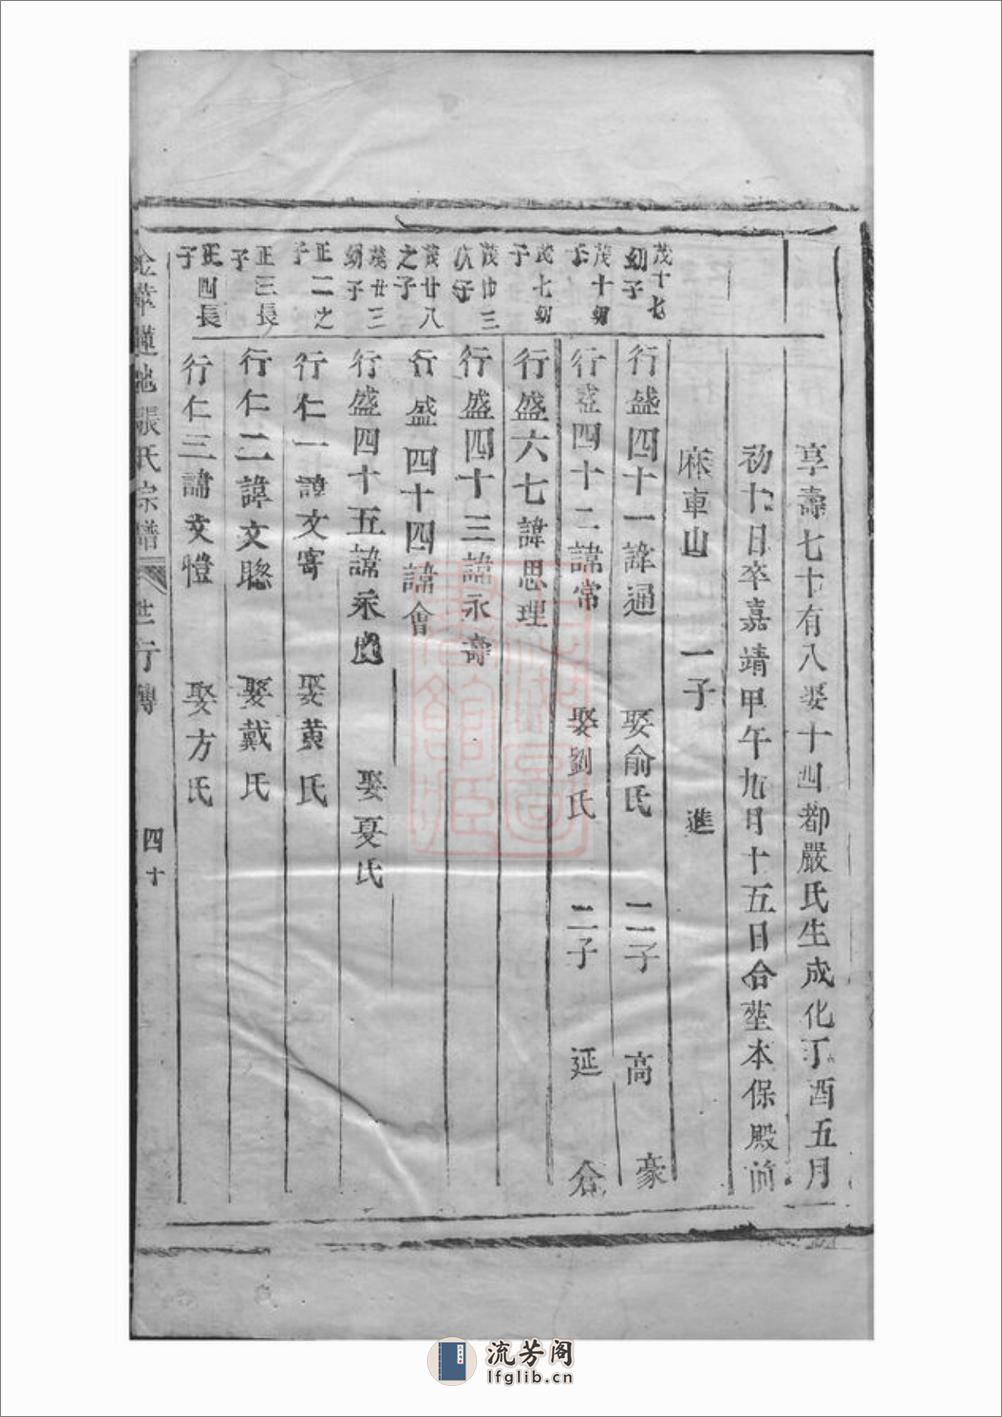 享壽七十有八娶十四都嚴氏生成化丁酉五月
初十日卒嘉靖甲午九月十五日合塟本保殿前
麻車山 一子 進
茂十七幼子
行盛四十一諱通 娶俞氏 二子 高 豪
茂十幼子
行盛四十二諱常 娶劉氏 二子 延 倉
茂七幼子
行盛六七諱思理
茂廿三次子
行盛四十三諱永壽
茂廿八之子
行盛四十四諱會
茂廿三幼子
行盛四十五諱永 娶夏氏
正二之子
行仁一諱文寄 娶黃氏
正三長子
行仁二諱文聰 娶戴氏
正四長子
行仁三諱文愷 娶方氏
金華蓮池張氏宗譜 世行傳 四十
流芳阁
lfglib.cn